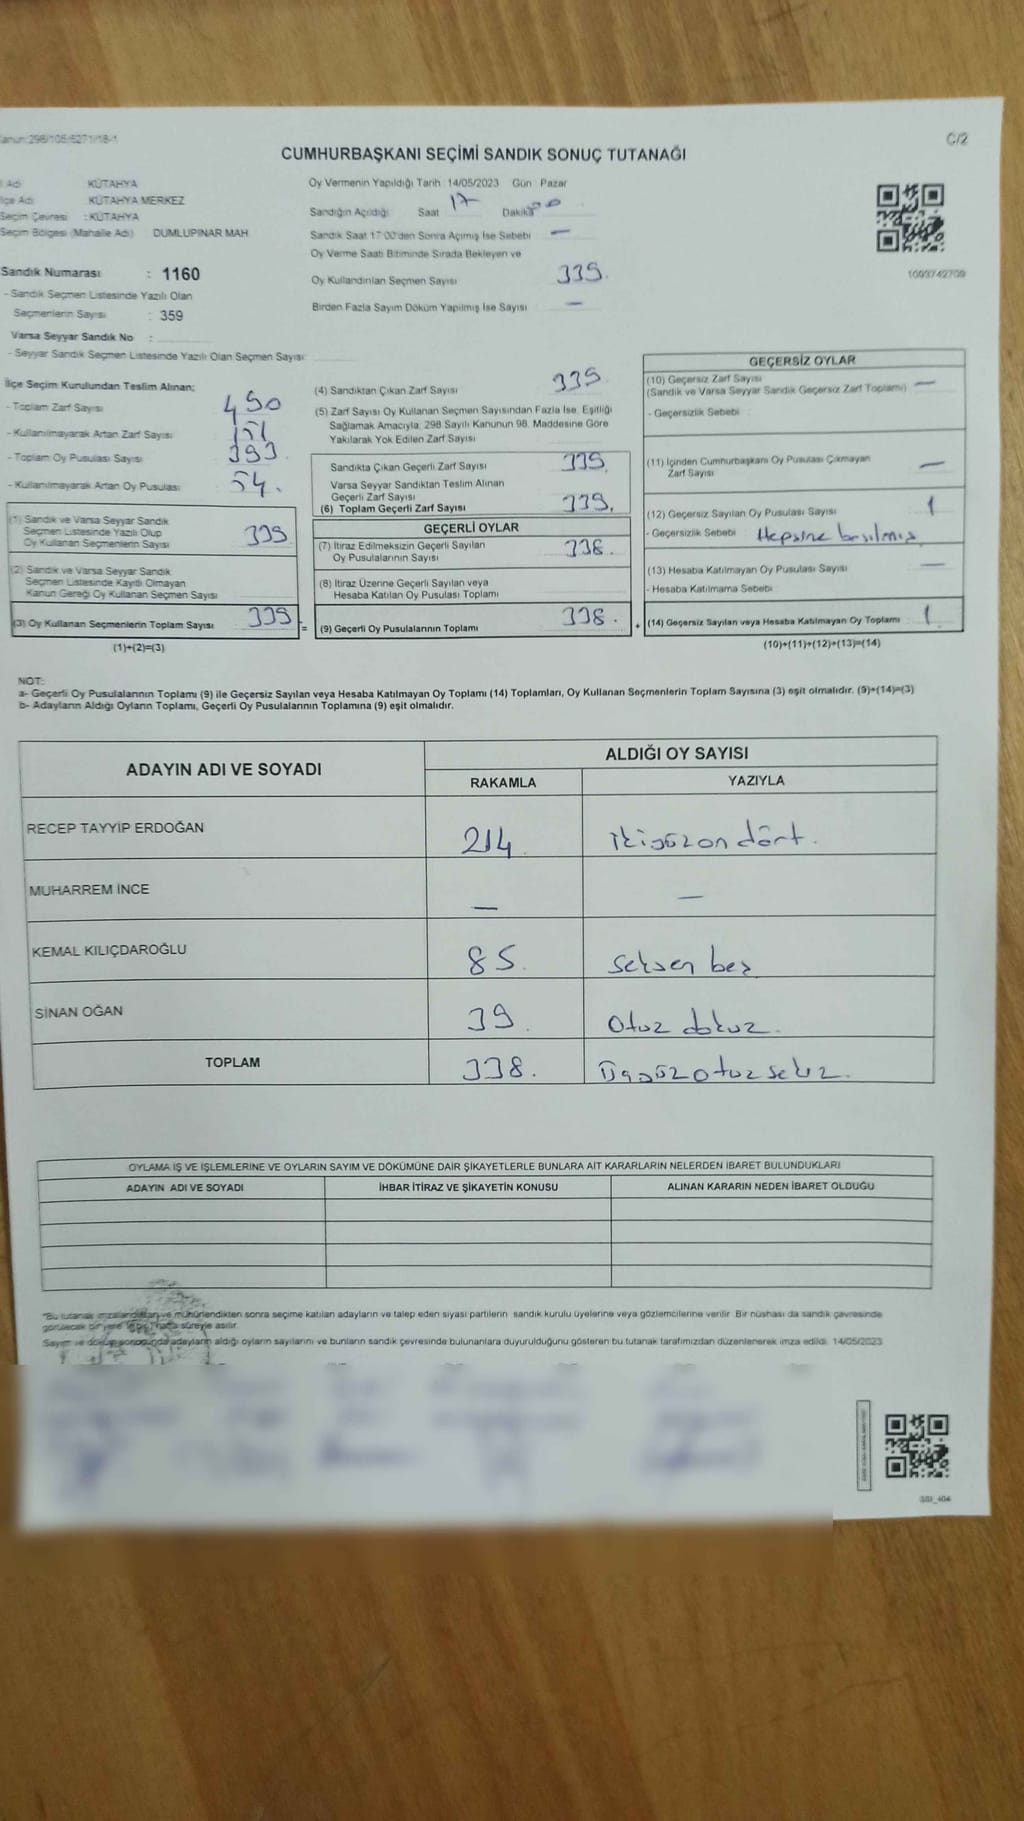 C/2
CUMHURBAŞKANI SEÇİMİ SANDIK SONUÇ TUTANAĞI
Adı KÜTAHYA
İlçe Adı KÜTAHYA MERKEZ
Seçim Çevresi : KÜTAHYA
Seçim Bölgesi (Mahalle Adı) DUMLUPINAR MAH.
Sandık Numarası : 1160
- Sandık Seçmen Listesinde Yazılı Olan
Seçmenlerin Sayısı : 359
Varsa Seyyar Sandık No :
- Seyyar Sandık Seçmen Listesinde Yazılı Olan Seçmen Sayısı:
Oy Vermenin Yapıldığı Tarih : 14/05/2023 Gün : Pazar
Sandığın Açıldığı Saat 17 Dakika 00
Sandık Saat 17:00'den Sonra Açımış İse Sebebi —
Oy Verme Saati Bitiminde Sırada Bekleyen ve
Oy Kullandırılan Seçmen Sayısı 339.
Birden Fazla Sayım Döküm Yapılmış İse Sayısı —
1003742709
İlçe Seçim Kurulundan Teslim Alınan;
- Toplam Zarf Sayısı 490
- Kullanılmayarak Artan Zarf Sayısı 151
- Toplam Oy Pusulası Sayısı 393
- Kullanılmayarak Artan Oy Pusulası 54.
(1) Sandık ve Varsa Seyyar Sandık
Seçmen Listesinde Yazılı Olup
Oy Kullanan Seçmenlerin Sayısı 339
(2) Sandık ve Varsa Seyyar Sandık
Seçmen Listesinde Kayıtlı Olmayan
Kanun Gereği Oy Kullanan Seçmen Sayısı
(3) Oy Kullanan Seçmenlerin Toplam Sayısı 339 =
(1)+(2)=(3)
(4) Sandıktan Çıkan Zarf Sayısı 339
(5) Zarf Sayısı Oy Kullanan Seçmen Sayısından Fazla İse, Eşitliği
Sağlamak Amacıyla, 298 Sayılı Kanunun 98. Maddesine Göre
Yakılarak Yok Edilen Zarf Sayısı
Sandıkta Çıkan Geçerli Zarf Sayısı 339.
Varsa Seyyar Sandıktan Teslim Alınan
Geçerli Zarf Sayısı
(6) Toplam Geçerli Zarf Sayısı 339.
GEÇERLİ OYLAR
(7) İtiraz Edilmeksizin Geçerli Sayılan
Oy Pusulalarının Sayısı 338.
(8) İtiraz Üzerine Geçerli Sayılan veya
Hesaba Katılan Oy Pusulası Toplamı
(9) Geçerli Oy Pusulalarının Toplamı 338. +
GEÇERSİZ OYLAR
(10) Geçersiz Zarf Sayısı
(Sandık ve Varsa Seyyar Sandık Geçersiz Zarf Toplamı) —
- Geçersizlik Sebebi
(11) İçinden Cumhurbaşkanı Oy Pusulası Çıkmayan
Zarf Sayısı —
(12) Geçersiz Sayılan Oy Pusulası Sayısı 1
- Geçersizlik Sebebi Hepsine basılmış
(13) Hesaba Katılmayan Oy Pusulası Sayısı —
- Hesaba Katılmama Sebebi
(14) Geçersiz Sayılan veya Hesaba Katılmayan Oy Toplamı 1
(10)+(11)+(12)+(13)=(14)
NOT:
a- Geçerli Oy Pusulalarının Toplamı (9) ile Geçersiz Sayılan veya Hesaba Katılmayan Oy Toplamı (14) Toplamları, Oy Kullanan Seçmenlerin Toplam Sayısına (3) eşit olmalıdır. (9)+(14)=(3)
b- Adayların Aldığı Oyların Toplamı, Geçerli Oy Pusulalarının Toplamına (9) eşit olmalıdır.
ADAYIN ADI VE SOYADI ALDIĞI OY SAYISI
RAKAMLA YAZIYLA
RECEP TAYYİP ERDOĞAN 214 ikiyüzondört.
MUHARREM İNCE — —
KEMAL KILIÇDAROĞLU 85. seksen beş
SİNAN OĞAN 39. Otuz dokuz.
TOPLAM 338. Üçyüzotuzsekiz.
OYLAMA İŞ VE İŞLEMLERİNE VE OYLARIN SAYIM VE DÖKÜMÜNE DAİR ŞİKAYETLERLE BUNLARA AİT KARARLARIN NELERDEN İBARET BULUNDUKLARI
ADAYIN ADI VE SOYADI İHBAR İTİRAZ VE ŞİKAYETİN KONUSU ALINAN KARARIN NEDEN İBARET OLDUĞU
*Bu tutanak imzalandıktan ve mühürlendikten sonra seçime katılan adayların ve talep eden siyasi partilerin sandık kurulu üyelerine veya gözlemcilerine verilir. Bir nüshası da sandık çevresinde
görülecek bir yere bir hafta süreyle asılır.
Sayım ve döküm sonucunda adayların aldığı oyların sayılarını ve bunların sandık çevresinde bulunanlara duyurulduğunu gösteren bu tutanak tarafımızdan düzenlenerek imza edildi. 14/05/2023